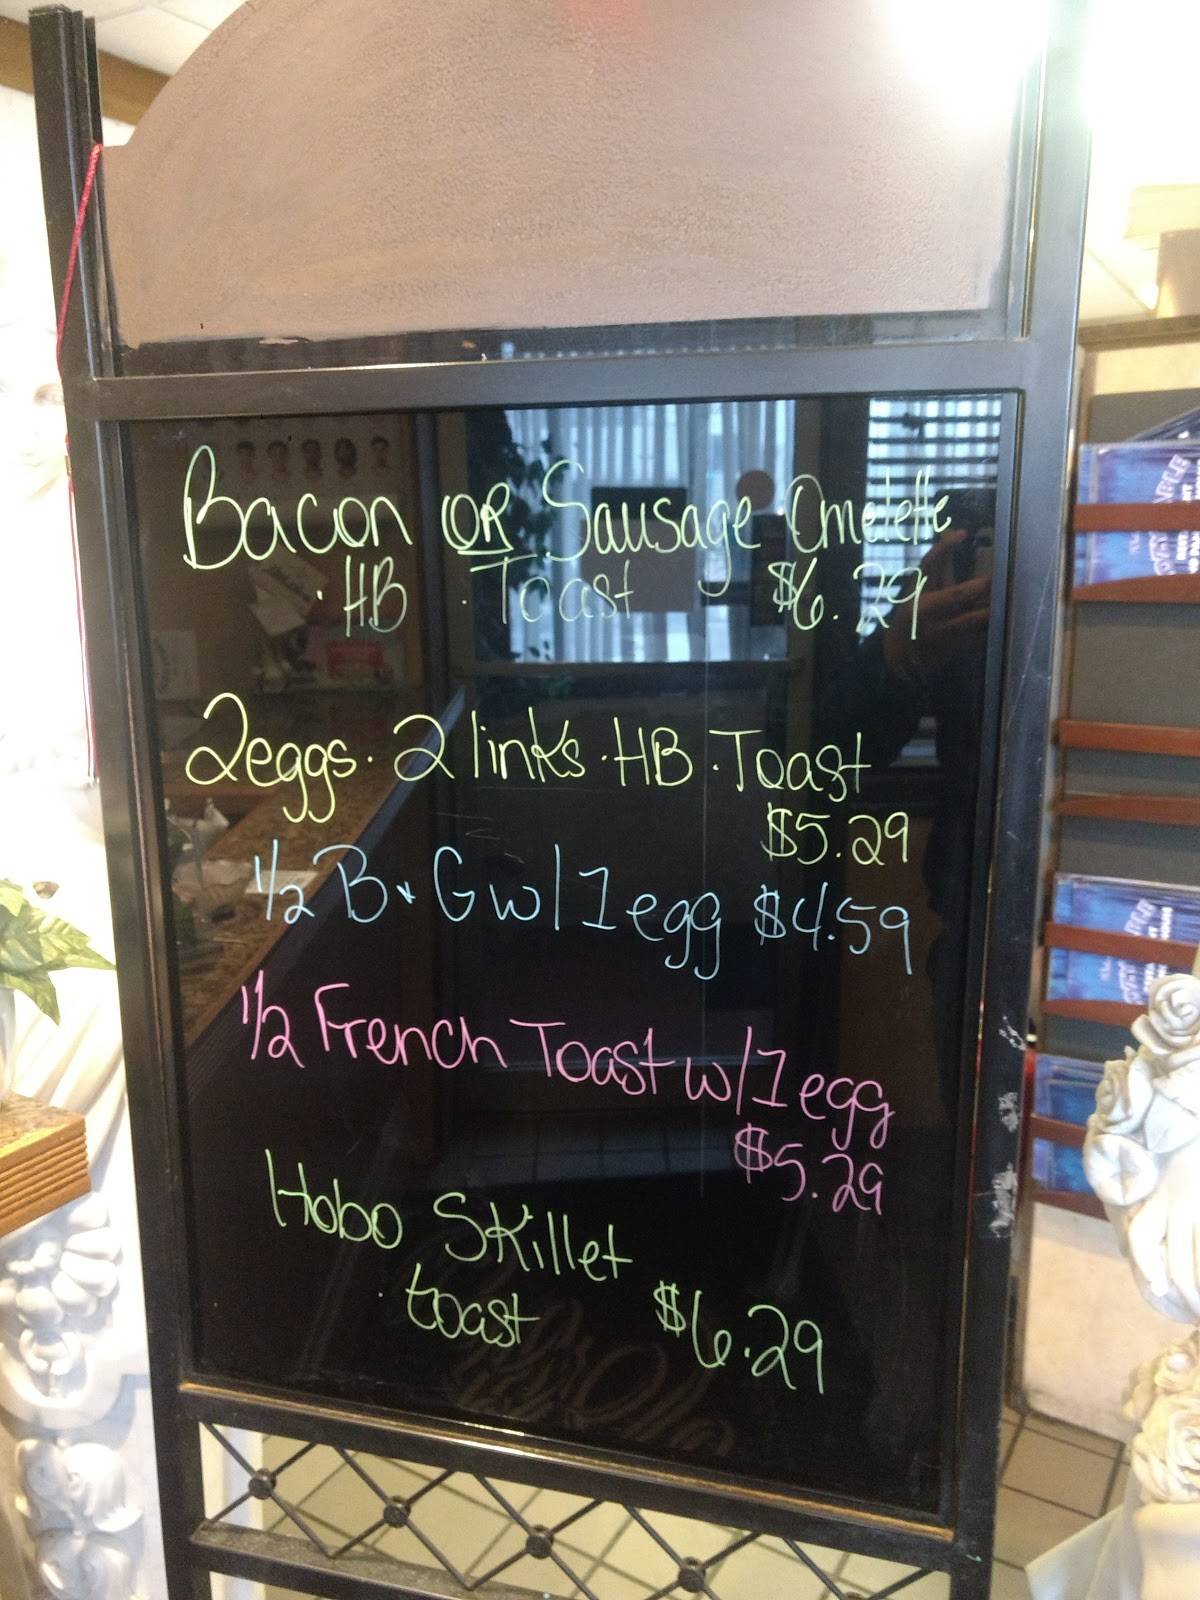 Bacon OR Sausage Omelette
· HB · Toast $6.29
2eggs · 2 links · HB · Toast
$5.29
1/2 B + G w/ 1 egg $4.59
1/2 French Toast w/ 1 egg
$5.29
Hobo Skillet
· toast $6.29